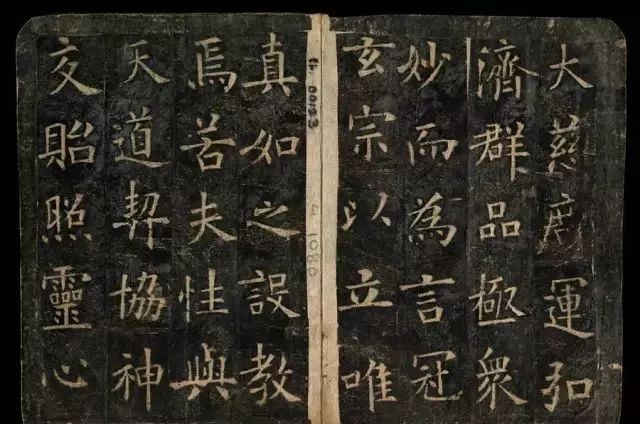 大慈運弘
濟群品極衆
妙而為言冠
玄宗以立唯
00123
1080
真如之設教
焉若夫性與
天道契協神
交貽照靈心